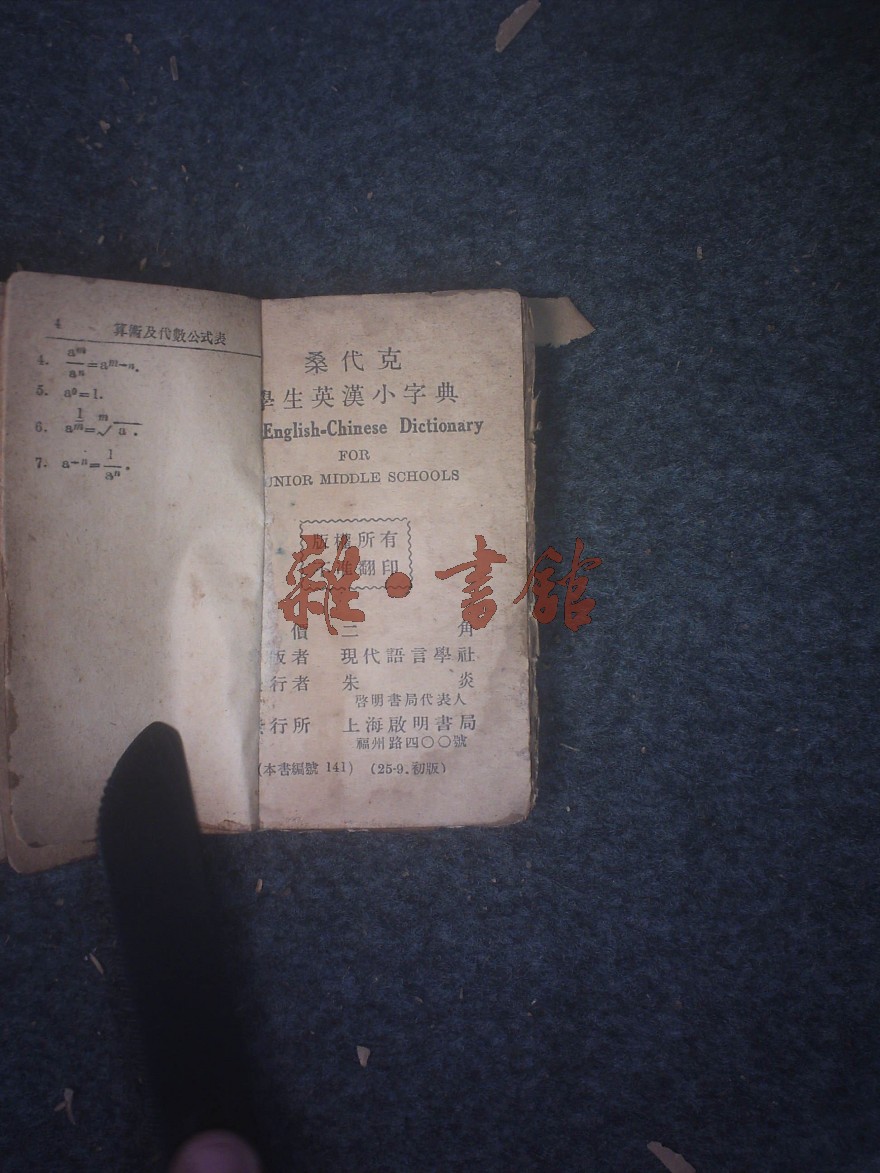 4 算術及代數公式表
4. aᵐ/aⁿ=aᵐ⁻ⁿ.
5. a⁰=1.
6. a^(1/m)=ᵐ√a.
7. a⁻ⁿ=1/aⁿ.
桑代克
學生英漢小字典
English-Chinese Dictionary
FOR
UNIOR MIDDLE SCHOOLS
版權所有
翻印
雜·書館
價 二角
版者 現代語言學社
行者 朱炎
啓明書局代表人
行所 上海啟明書局
福州路四〇〇號
(本書編號 141) (25-9.初版)